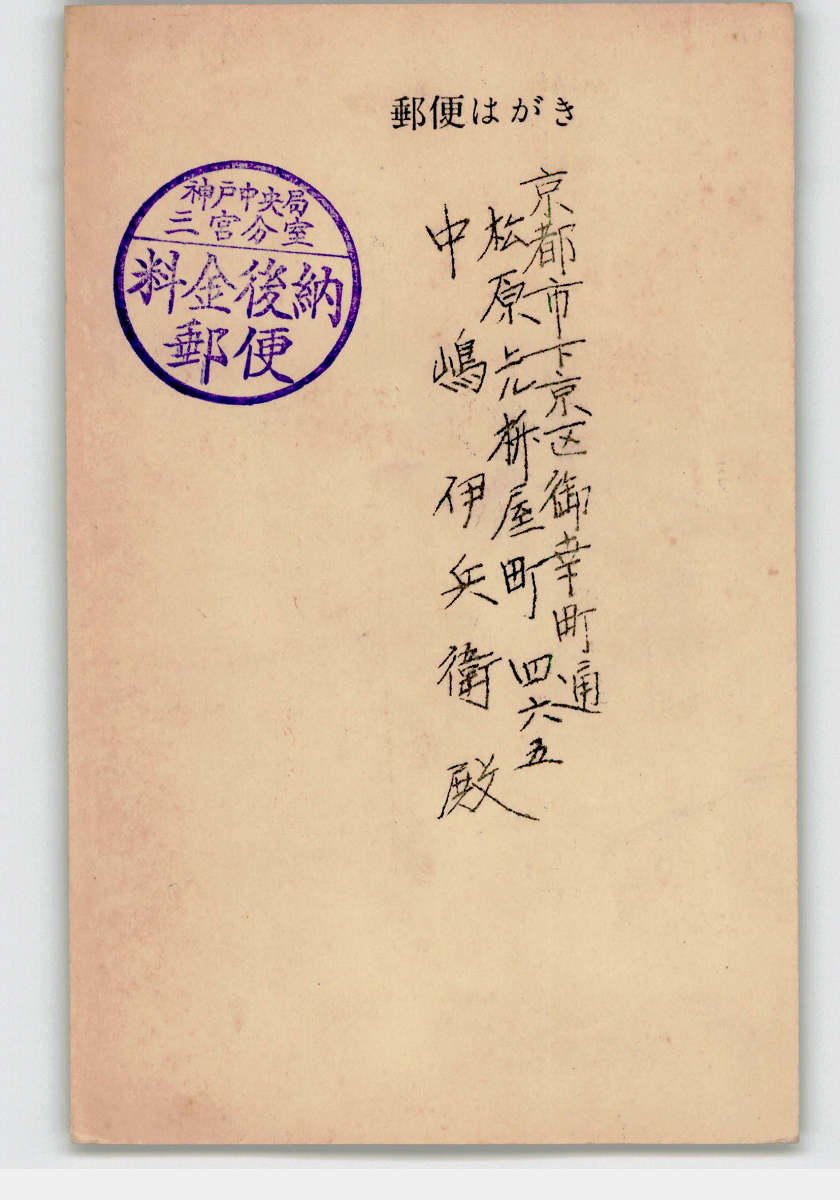 郵便はがき
京都市下京区御幸町通
松原上ル桝屋町四六五
中嶋伊兵衛殿
神戸中央局
三宮分室
料金後納
郵便